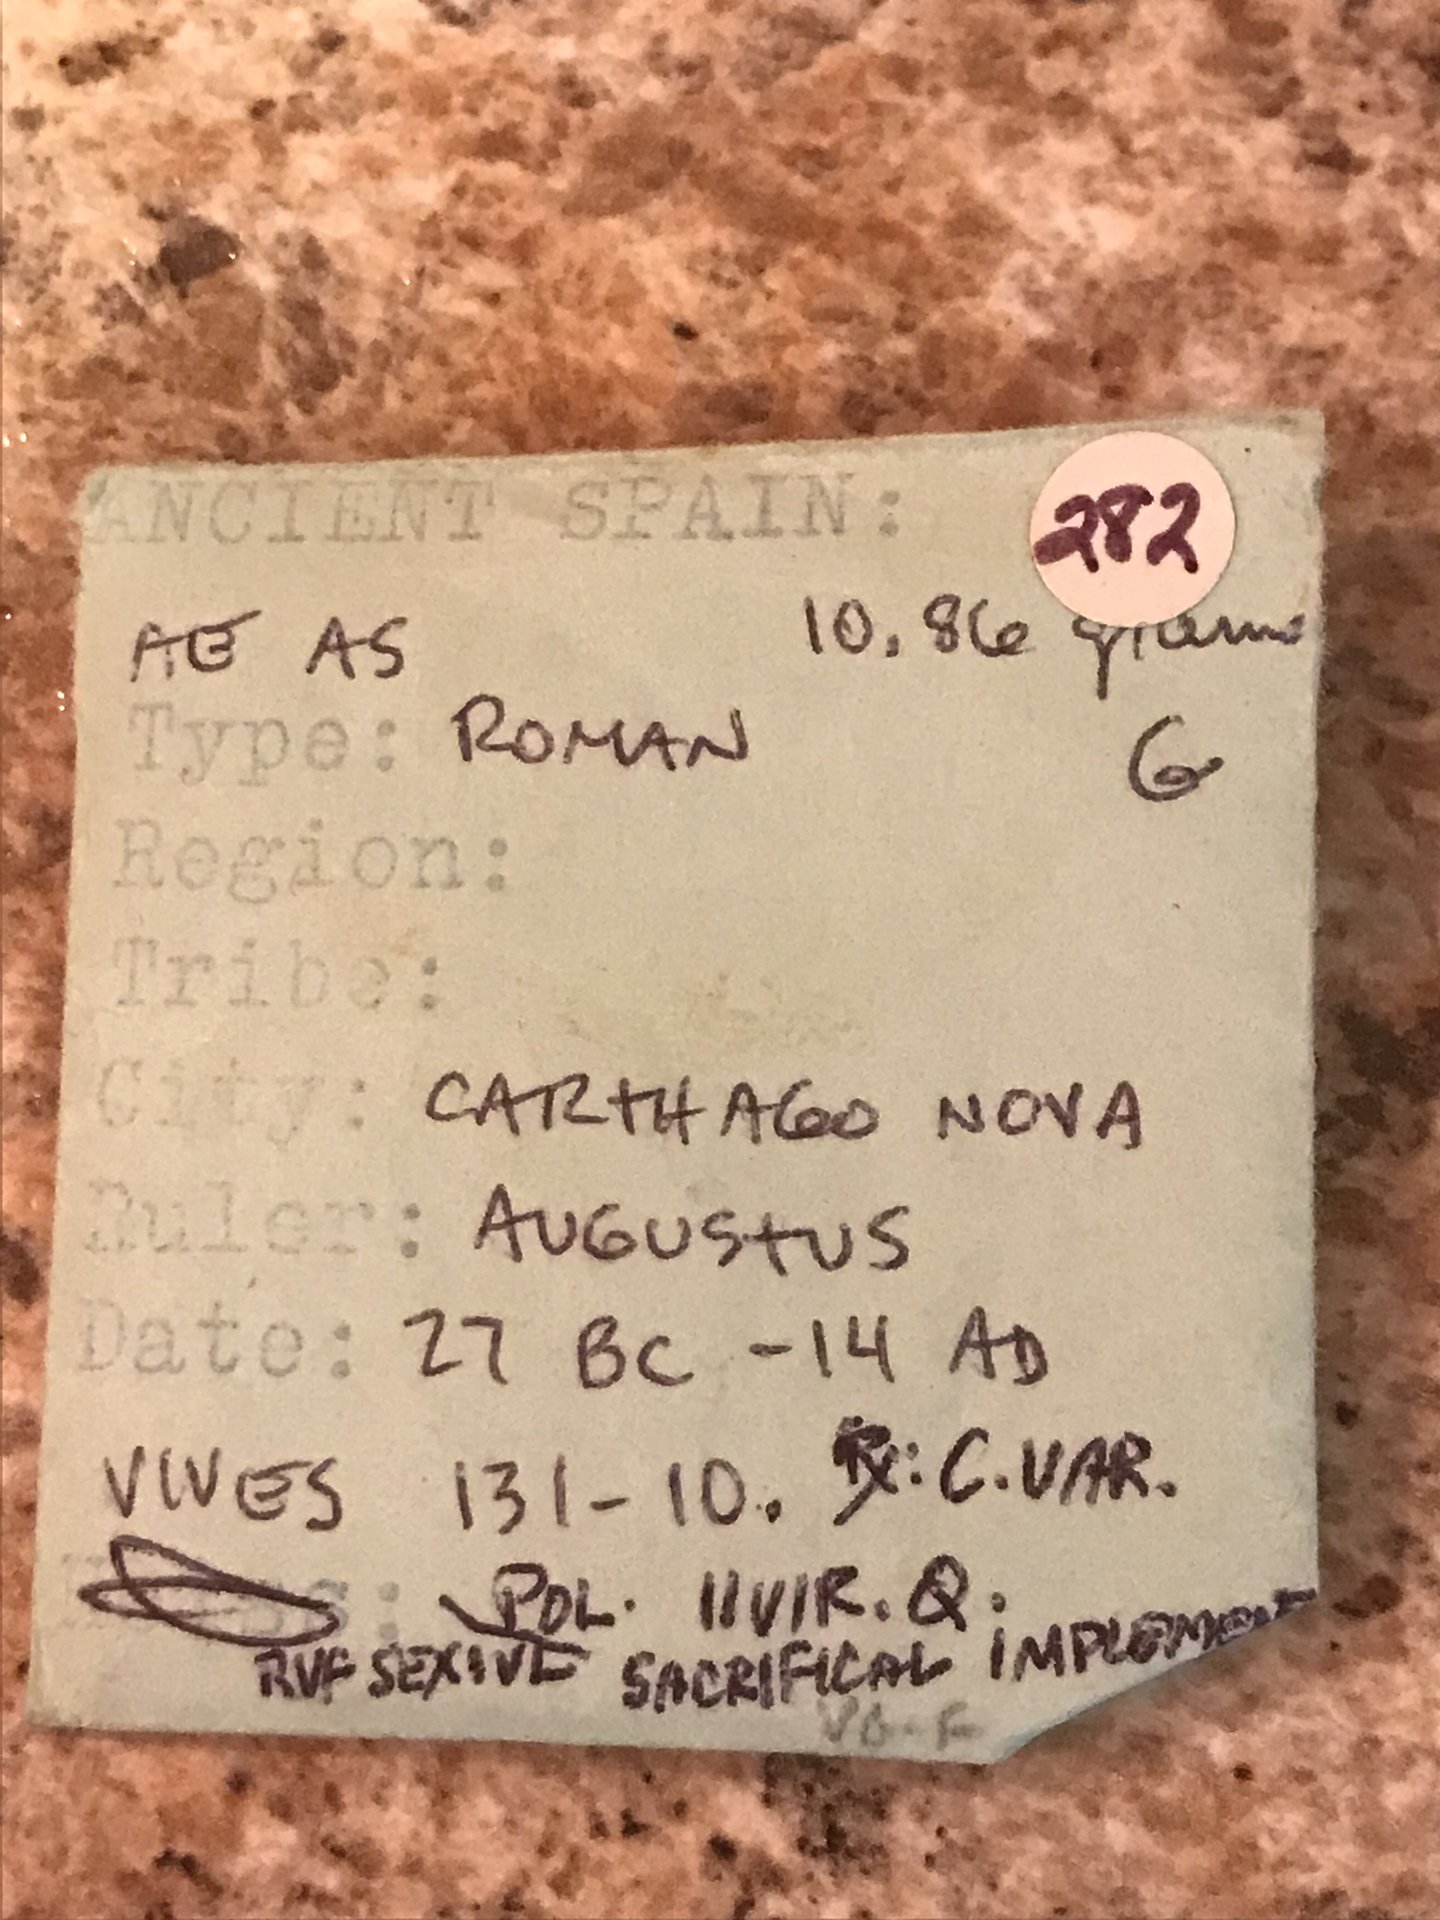 ANCIENT SPAIN: 282
AE AS 10.86 grams
Type: ROMAN G
Region:
Tribe:
City: CARTHAGO NOVA
Ruler: AUGUSTUS
Date: 27 BC - 14 AD
VIVES 131-10. Rx: C.VAR.
POL. IIVIR. Q.
RVF SEXTIVL SACRIFICAL IMPLEMENT
VG-F